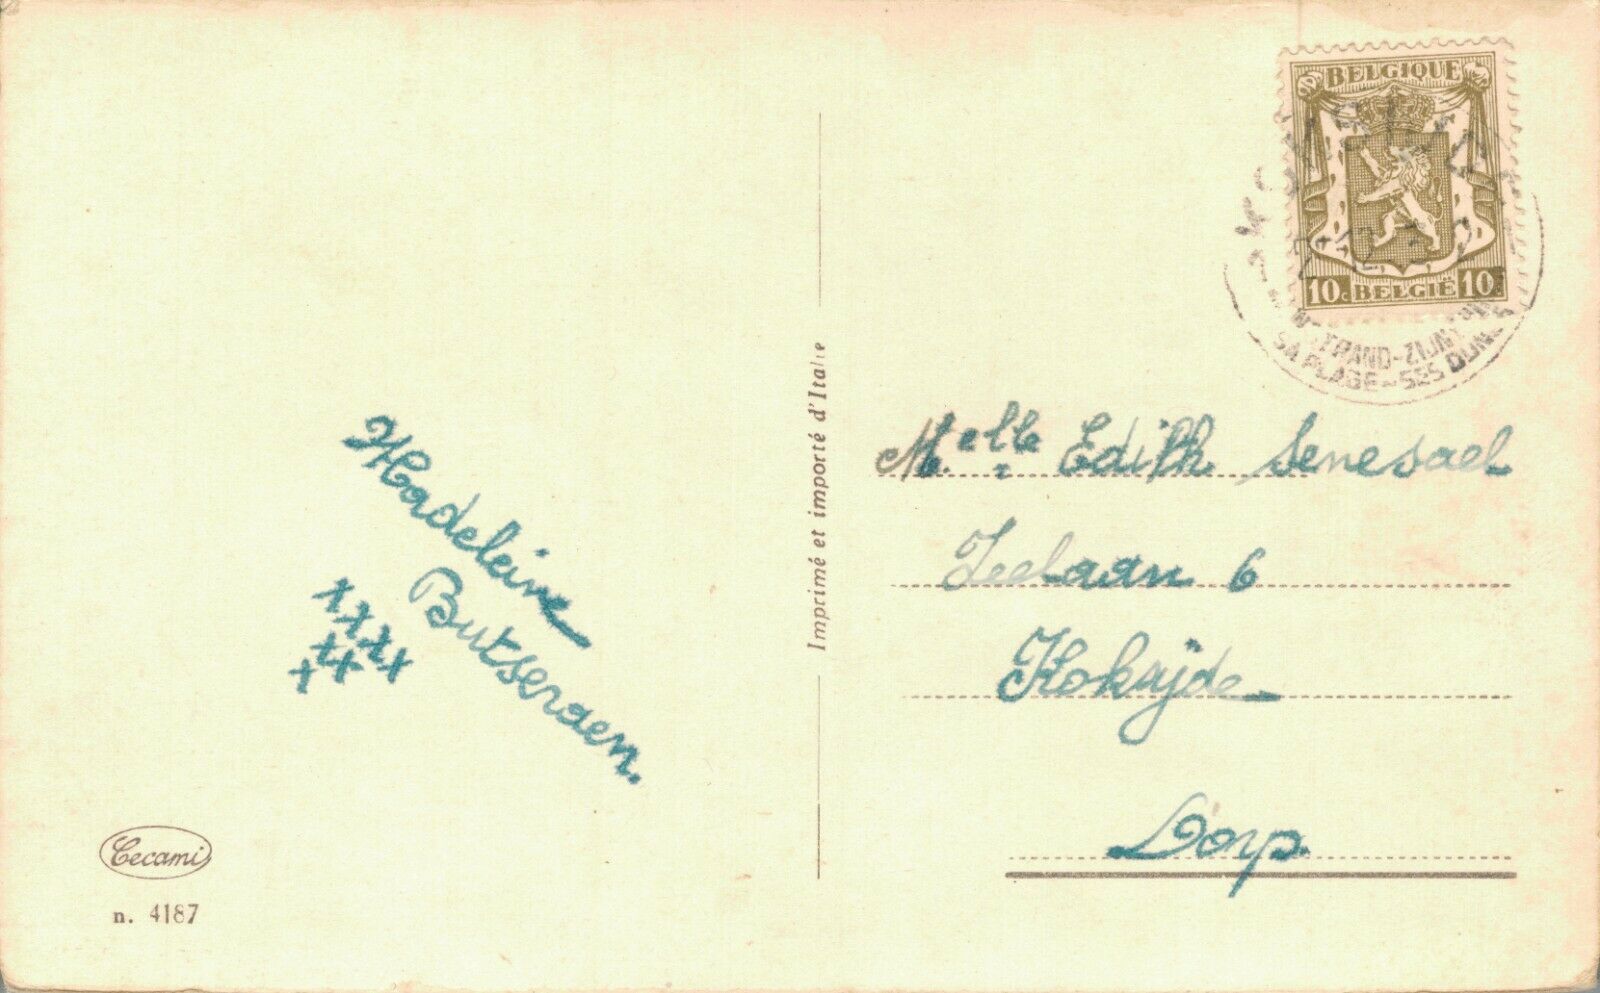 BELGIQUE
10c BELGIË 10
SA PLAGE - SES DUNES
Madeleine
Butseraen.
x x x x
x x
x
Imprimé et importé d'Italie
Melle Edith Senesael
Zeelaan 6
Koksijde
Dorp
Cecami
n. 4187